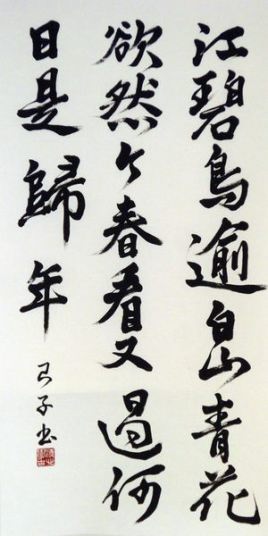 江碧鳥逾白山青花
欲然今春看又過何
日是歸年
子書